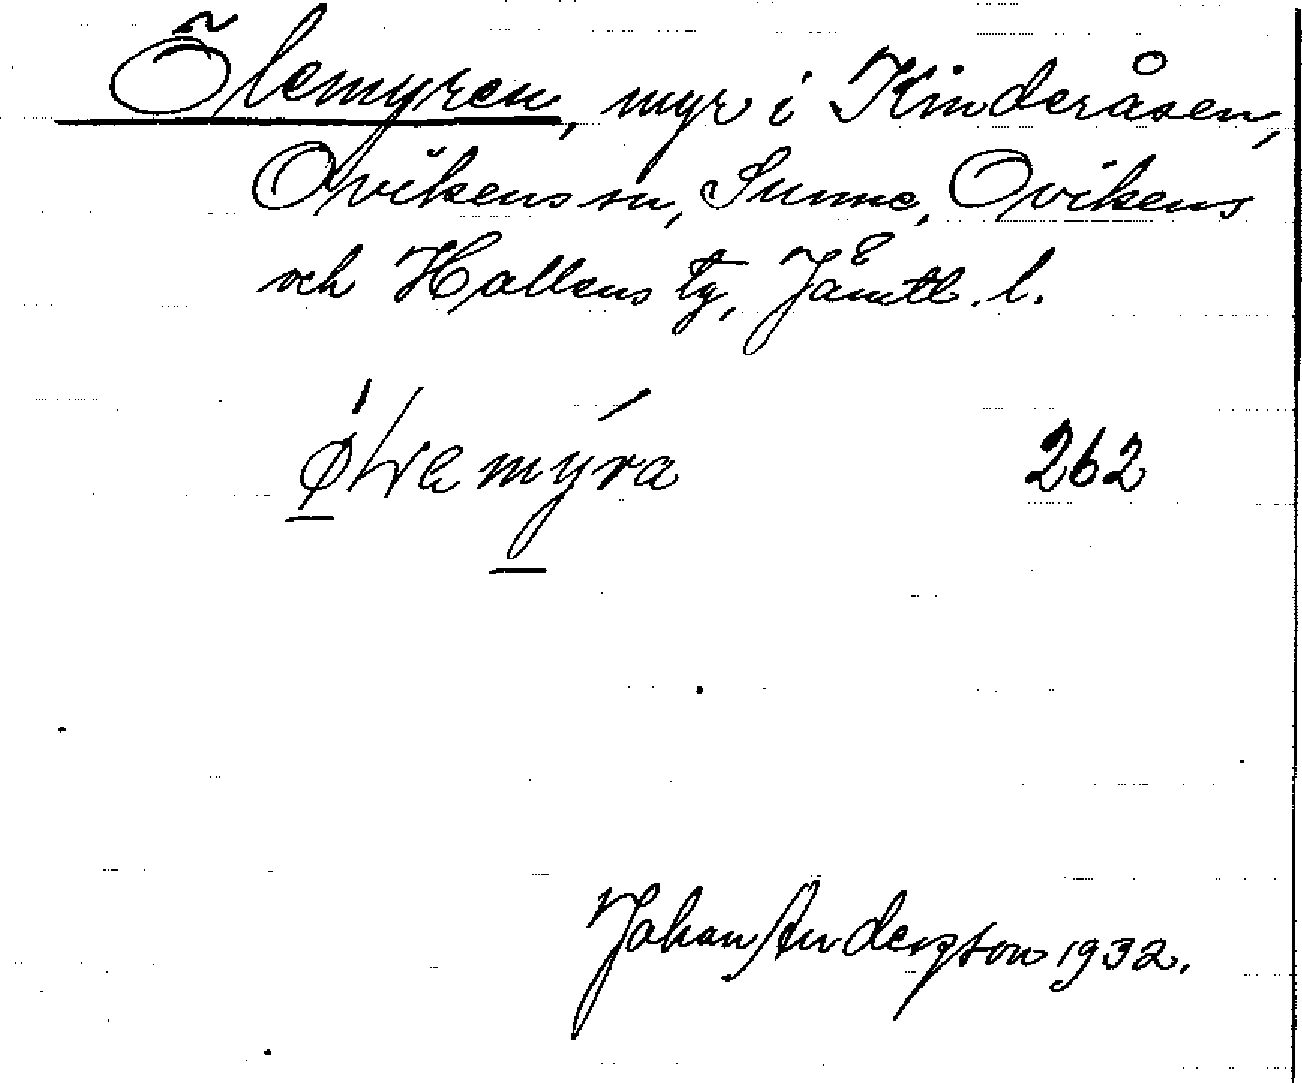 Ölemyren, myr i Kinderåsen,
Ovikens sn, Sunne, Ovikens
och Hallens tg, Jämtl. l.
mýra 262
Johan Anderson 1932.